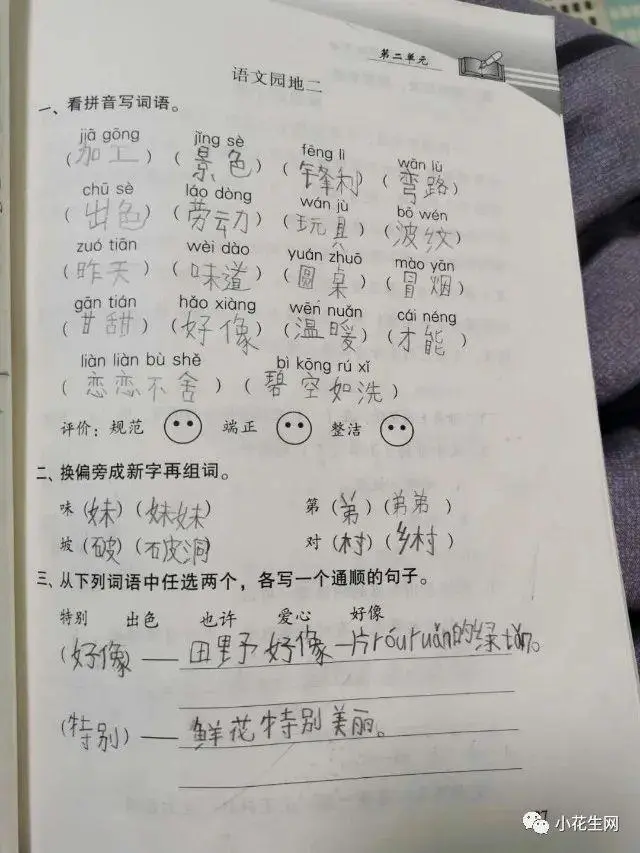 第二单元
语文园地二
一、看拼音写词语。
jiā gōng jǐng sè fēng lì wān lù
(加工) (景色) (锋利) (弯路)
chū sè láo dòng wán jù bō wén
(出色) (劳动) (玩具) (波纹)
zuó tiān wèi dào yuán zhuō mào yān
(昨天) (味道) (圆桌) (冒烟)
gān tián hǎo xiàng wēn nuǎn cái néng
(甘甜) (好像) (温暖) (才能)
liàn liàn bù shě bì kōng rú xǐ
(恋恋不舍) (碧空如洗)
评价：规范 端正 整洁
二、换偏旁成新字再组词。
味 (妹) (妹妹) 第 (弟) (弟弟)
坡 (破) (破洞) 对 (村) (乡村)
三、从下列词语中任选两个，各写一个通顺的句子。
特别 出色 也许 爱心 好像
(好像) — 田野好像一片róuruǎn的绿tǎn。
(特别) — 鲜花特别美丽。
小花生网